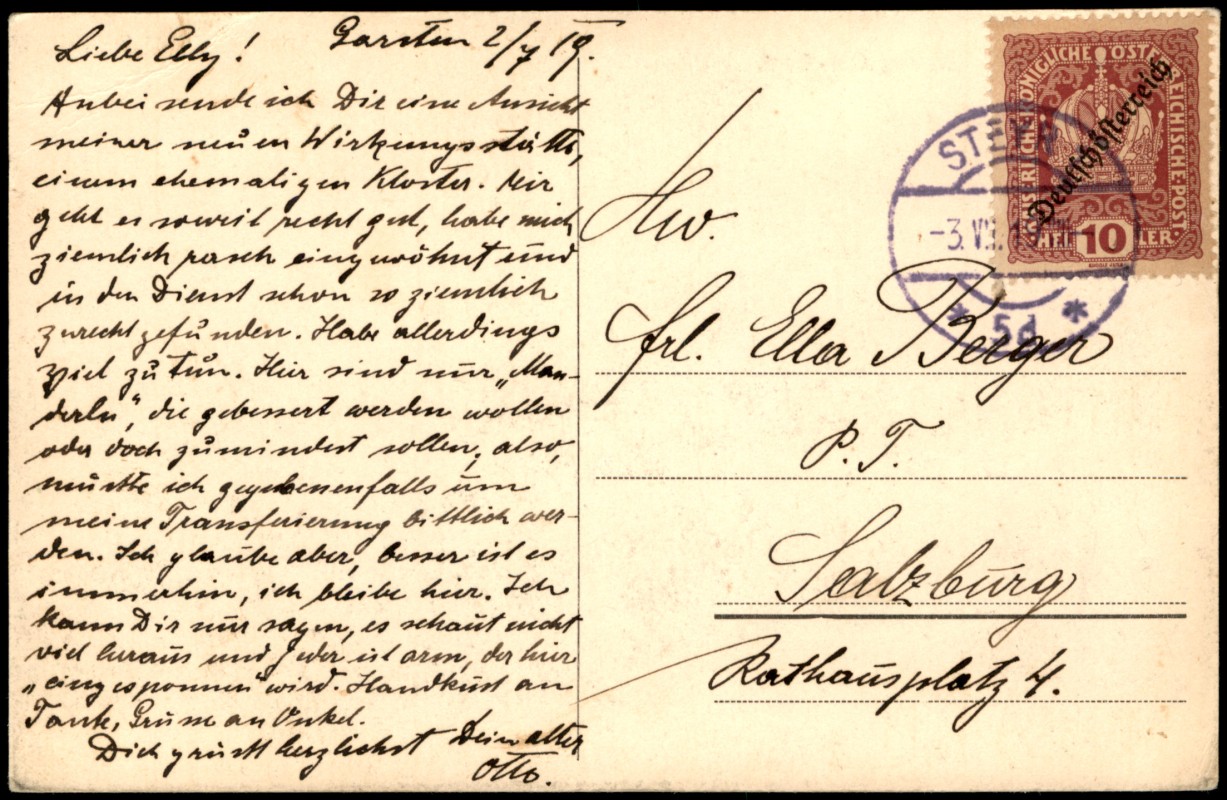 Liebe Elly! Garsten 2/7 19.
Anbei sende ich Dir eine Ansicht
meiner neuen Wirkungsstätte,
einem ehemaligen Kloster. Mir
geht es soweit recht gut, habe mich
ziemlich rasch eingewöhnt und
in den Dienst schon so ziemlich
zurecht gefunden. Habe allerdings
viel zu tun. Hier sind nur „Man-
derln", die gebessert werden wollen
oder doch zumindest sollen, also,
müsste ich gegebenenfalls um
meine Transferierung bittlich wer-
den. Ich glaube aber, besser ist es
immerhin, ich bleibe hier. Ich
kann Dir nur sagen, es schaut nicht
viel heraus und jeder ist arm, der hier
„eingesponnen" wird. Handkuss an
Tante, Grüsse an Onkel.
Dich grüsst herzlichst Dein alter
Otto.
Hw.
Frl. Ella Berger
P. T.
Salzburg
Rathausplatz 4.
KAISERLICHE KÖNIGLICHE ÖSTERREICHISCHE POST
Deutschösterreich
10
HELLER
STEYR
-3.VII.19
* 5d *